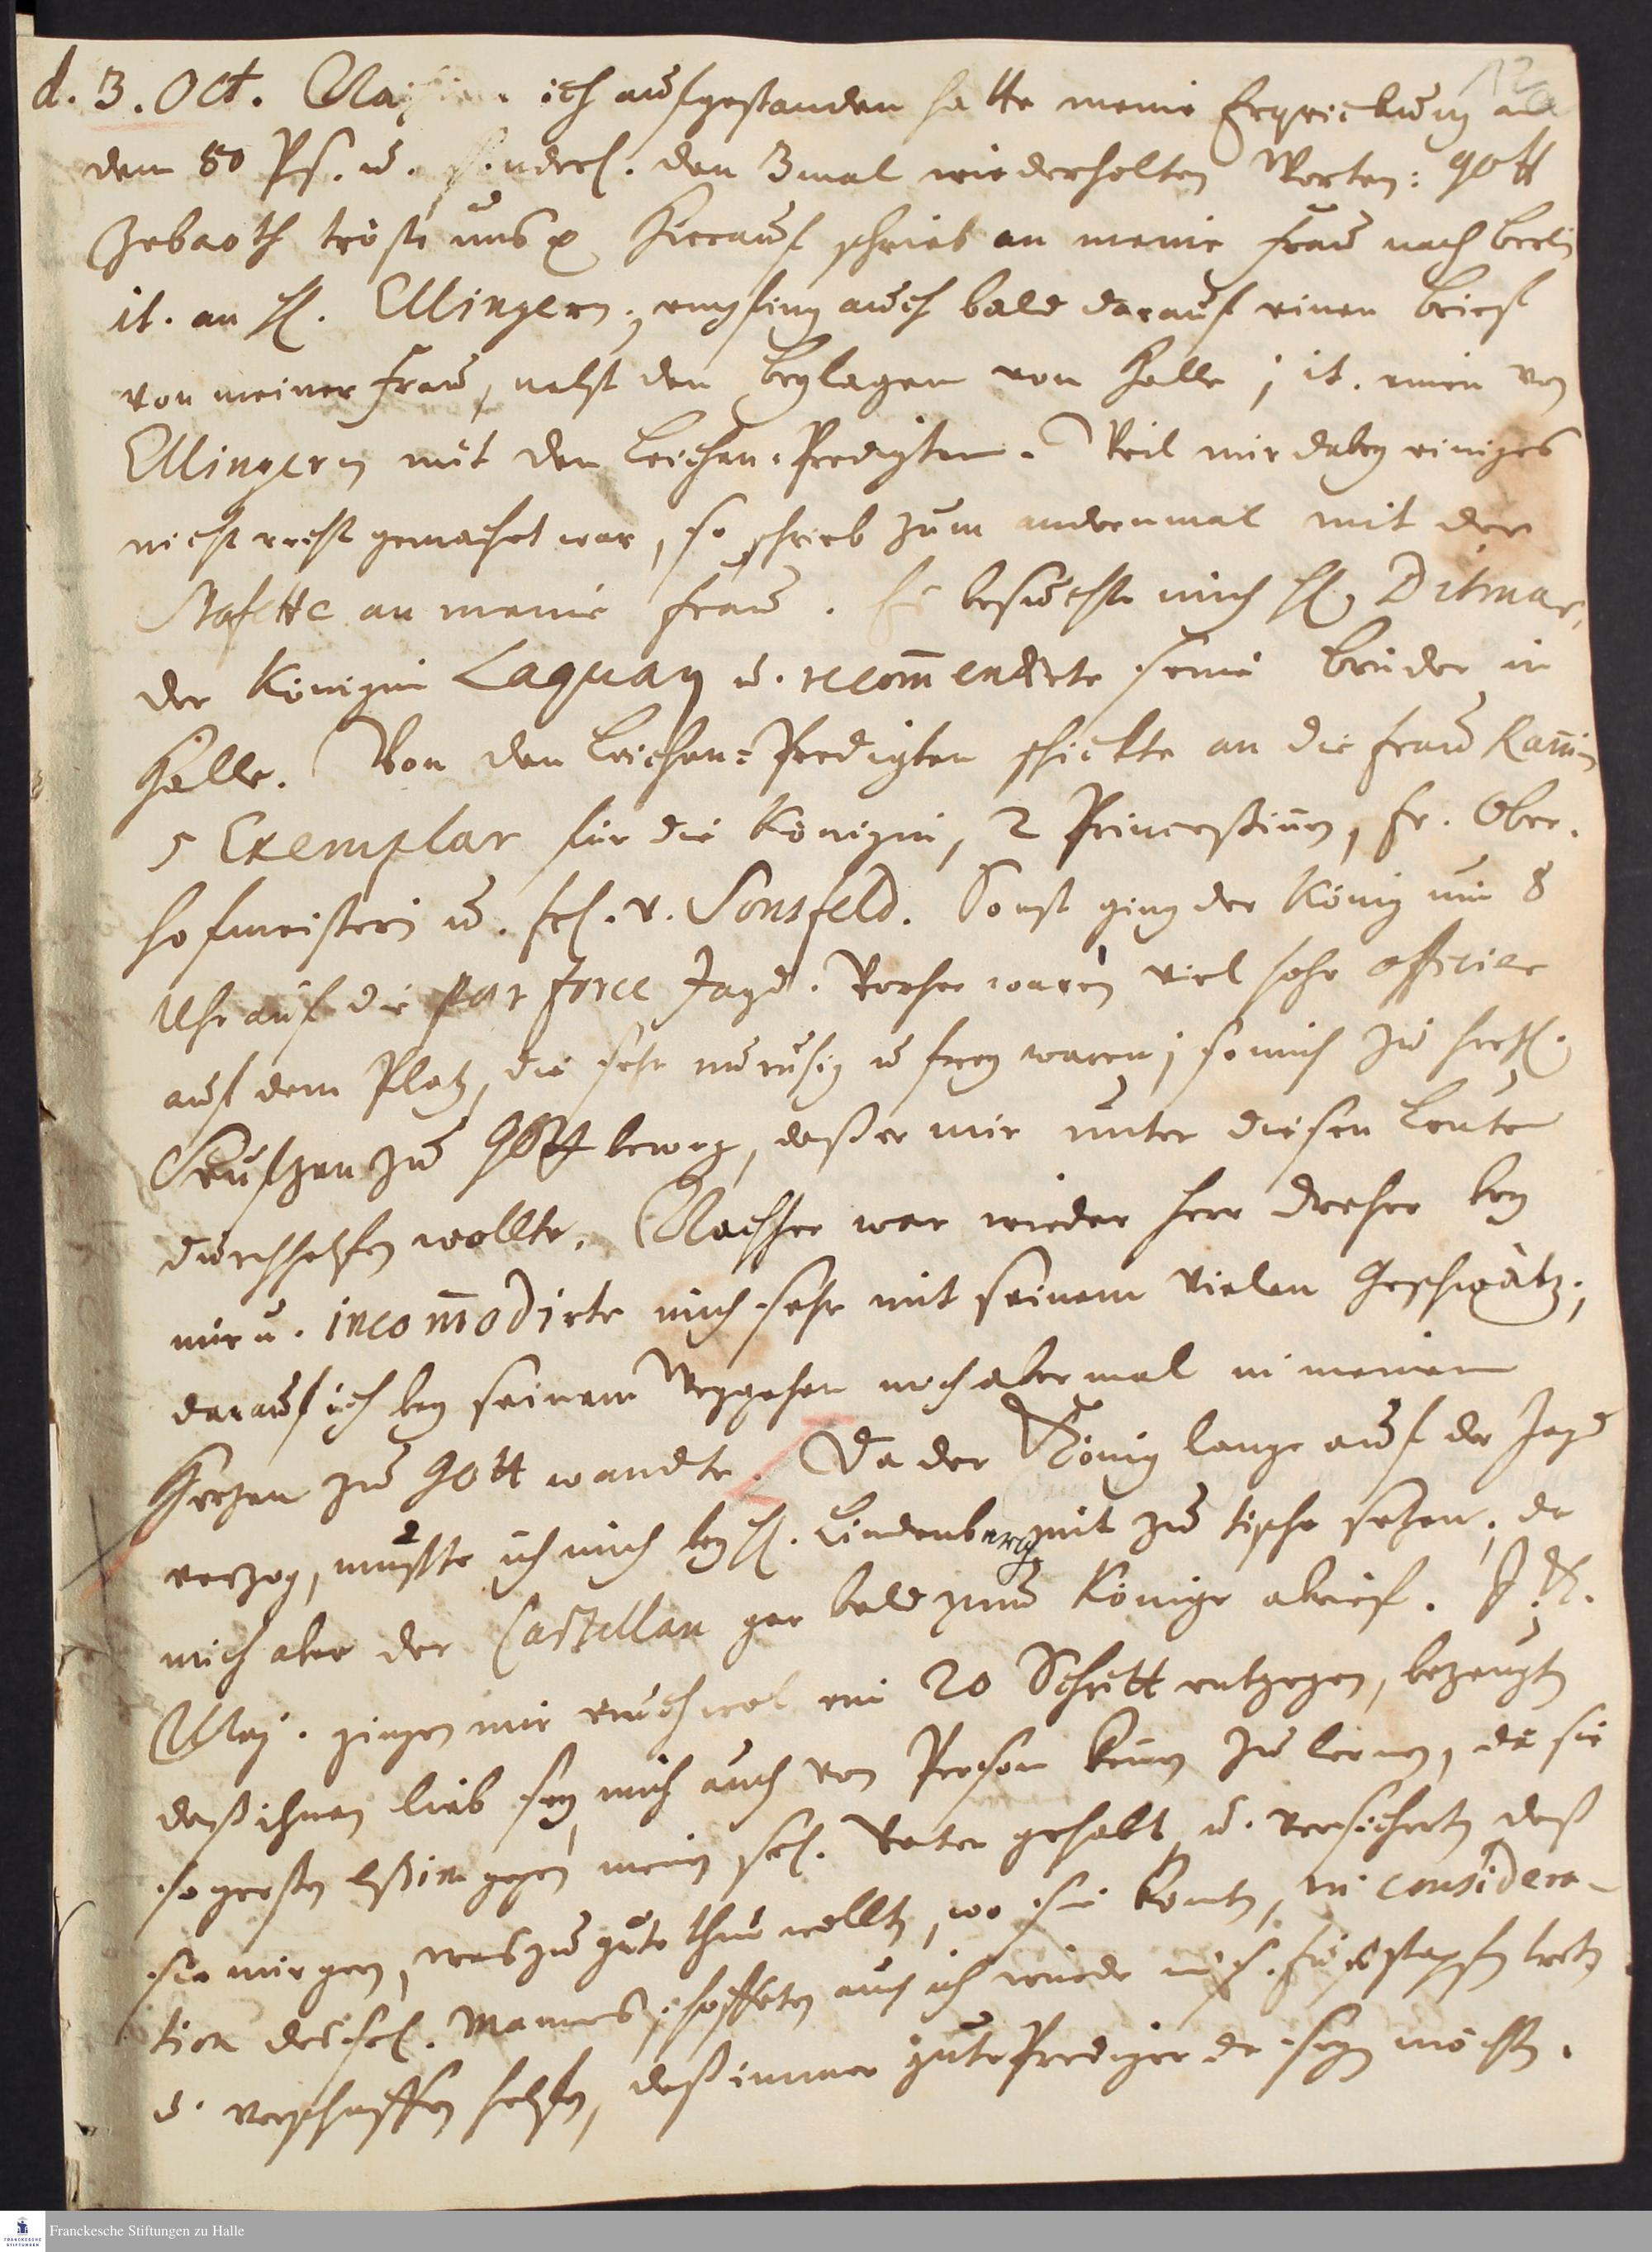 d. 3. Oct. Nachdem ich aufgestanden hatte meine Erqvickung aus
dem 80 Ps. u. sonderl. den 3mal wiederholten Worten: Gott
Zebaoth tröste uns p Hierauf schrieb an meine Frau nach Berlin
it. an H. Ellingern; empfing auch bald darauf einen Brief
von meiner Frau, nebst den Beylagen von Halle; it. einen von
Ellingern mit den Leichen-Predigten. Weil mir dabey einiges
nicht recht gemachet war, so schrieb zum andernmal mit der
Stafette an meine Frau. Es besuchte mich H. Ditmar,
der Königin Laquay u. recom̄endirte seine Brüder in
Halle. Von den Leichen-Predigten schickte an die Frau Kam̄in
5 Exemplar für die Königin, 2 Princeßinen, Fr. Ober-
hofmeisterin u. Frl. v. Sonsfeld. Sonst ging der König um 8
Uhr auf die par force Jagd. Vorher waren viel hohe officier
auf dem Platz, die sehr unruhig u frey waren; so mich zu hertzl.
Seufzen zu Gott bewog, daß er mir unter diesen Leuten
durchhelfen wollte. Nachher war wieder Herr Dreher bey
mir u. incom̄odirte mich sehr mit seinem vielen Geschwätz;
darauf ich bey seinem Weggehen noch abermal in meinem
Herzen zu Gott wandte. Da der König lange auf der Jagd
verzog, mußte ich mich bey H. Lindenberg mit zu tische setzen; da
mich aber der Castellan gar bald zum Könige abrief. I. K.
Maj. gingen mir auch wol ein 20 Schritt entgegen, bezeugten
daß ihnen lieb sey mich auch von Person kenen zu lernen, da sie
so großen Estim gegen meinen sel. Vater gehabt, u. versicherten daß
sie mir gern, was zu gute thun wollten, wo sie konten, in considera-
tion des sel. Mannes; hoffeten auch ich würde in s. Fußstapfen treten
u. verschaffen helfen, daß immer gute Prediger da seyn möchten.
Franckesche Stiftungen zu Halle